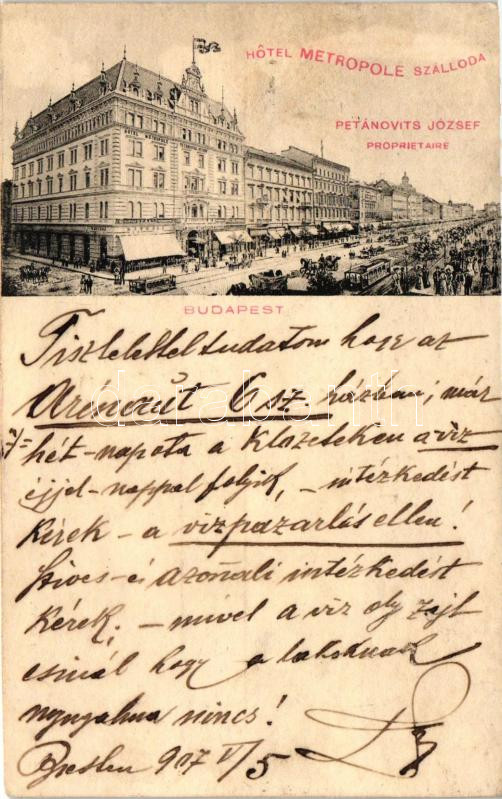 HÔTEL METROPOLE SZÁLLODA
PETÁNOVITS JÓZSEF
PROPRIETAIRE
BUDAPEST
Tisztelettel tudatom hogy az
6 sz. házban, már
hét-napota a klozeteken a víz
éjjel-nappal folyik, – intézkedést
kérek – a vízpazarlás ellen!
Szives- és azonnali intézkedést
kérek, – mivel a víz oly zajt
csinál hogy a lakóknak
nyugalma nincs!
907 V/5